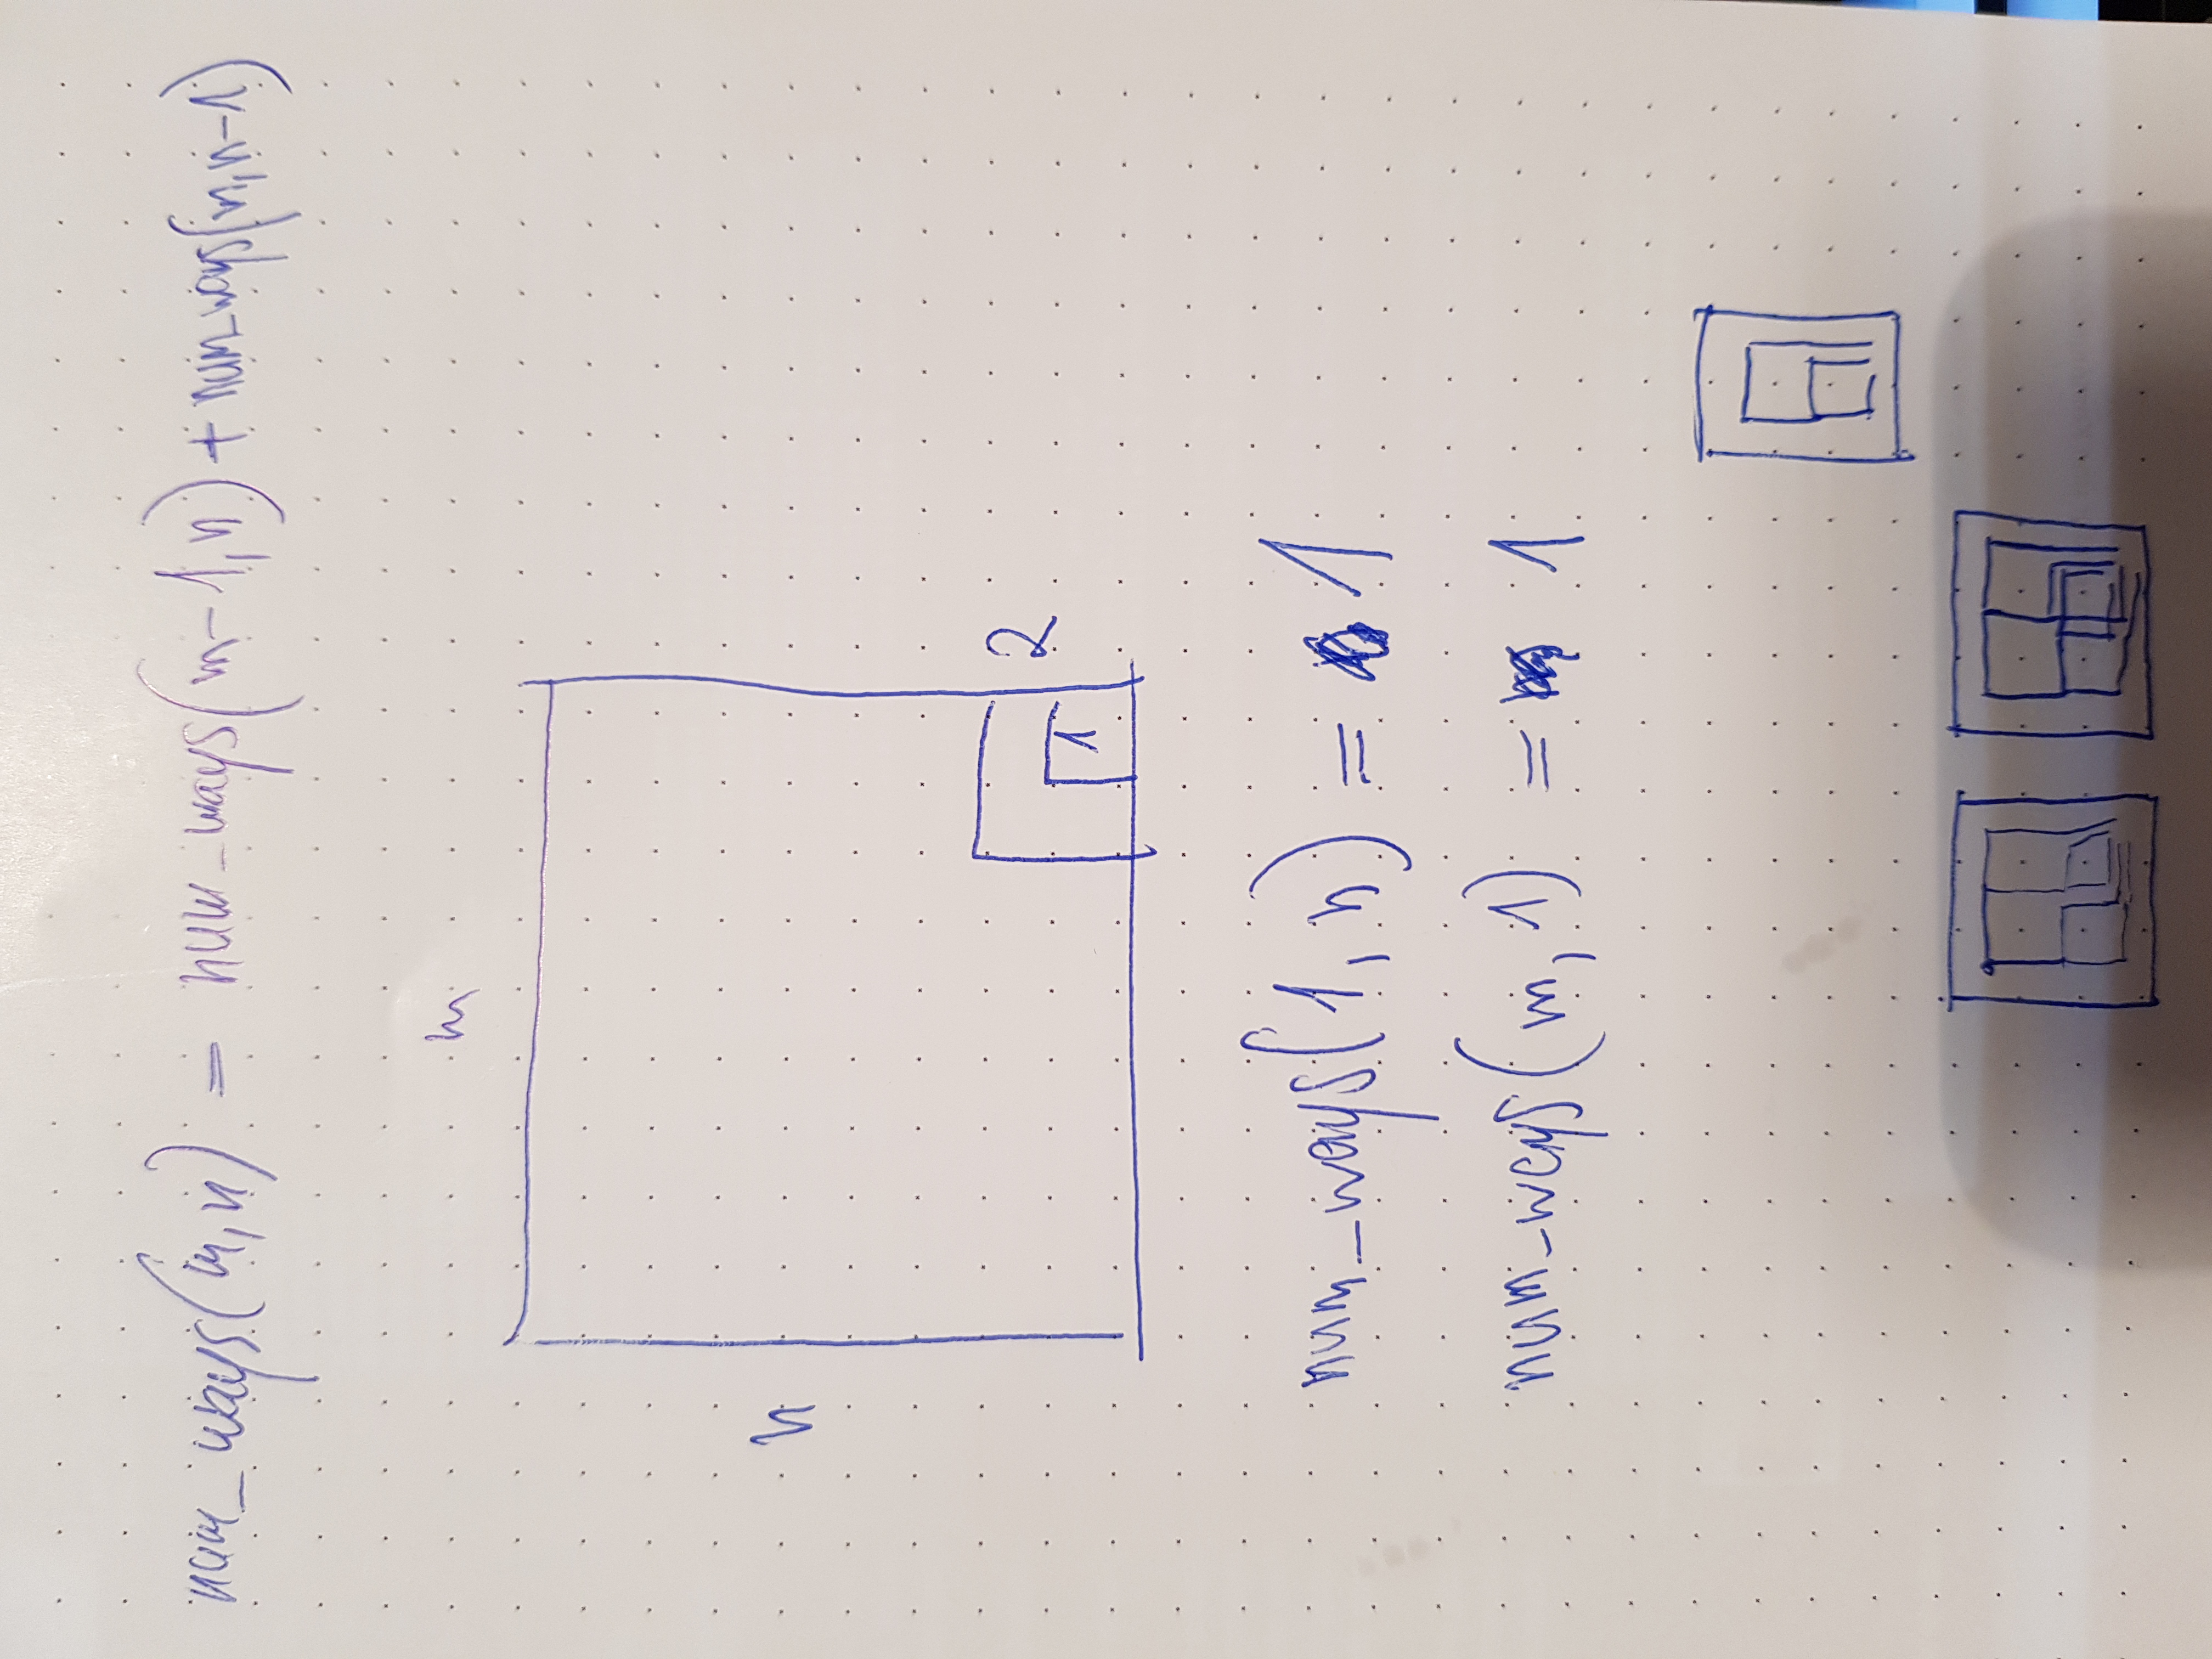 num_ways(m,n) = num_ways(m-1,n) + num_ways(m,n-1)
m
n
2
1
num_ways(1,n) = 1
num_ways(m,1) = 1